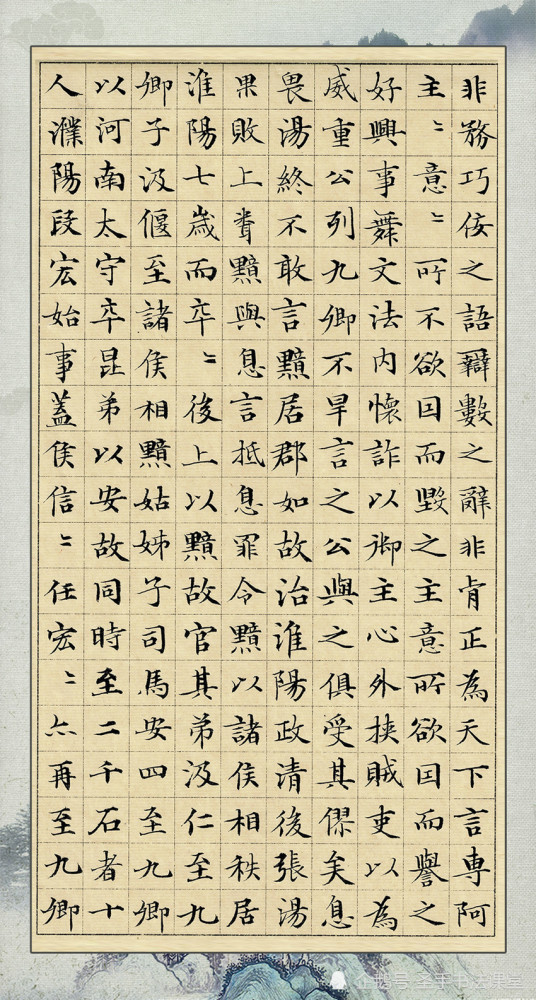 非務巧佞之語辯數之辭非肯正為天下言専阿
主〻意〻所不欲因而毀之主意所欲因而譽之
好興事舞文法内懐詐以御主心外挟賊吏以為
威重公列九卿不早言之公與之俱受其僇矣息
畏湯終不敢言黯居郡如故治淮陽政清後張湯
果敗上聞黯與息言抵息罪令黯以諸侯相秩居
淮陽七歳而卒〻後上以黯故官其弟汲仁至九
卿子汲偃至諸侯相黯姑姊子司馬安四至九卿
以河南太守卒昆弟以安故同時至二千石者十
人濮陽段宏始事蓋侯信〻任宏〻亦再至九卿
企鹅号